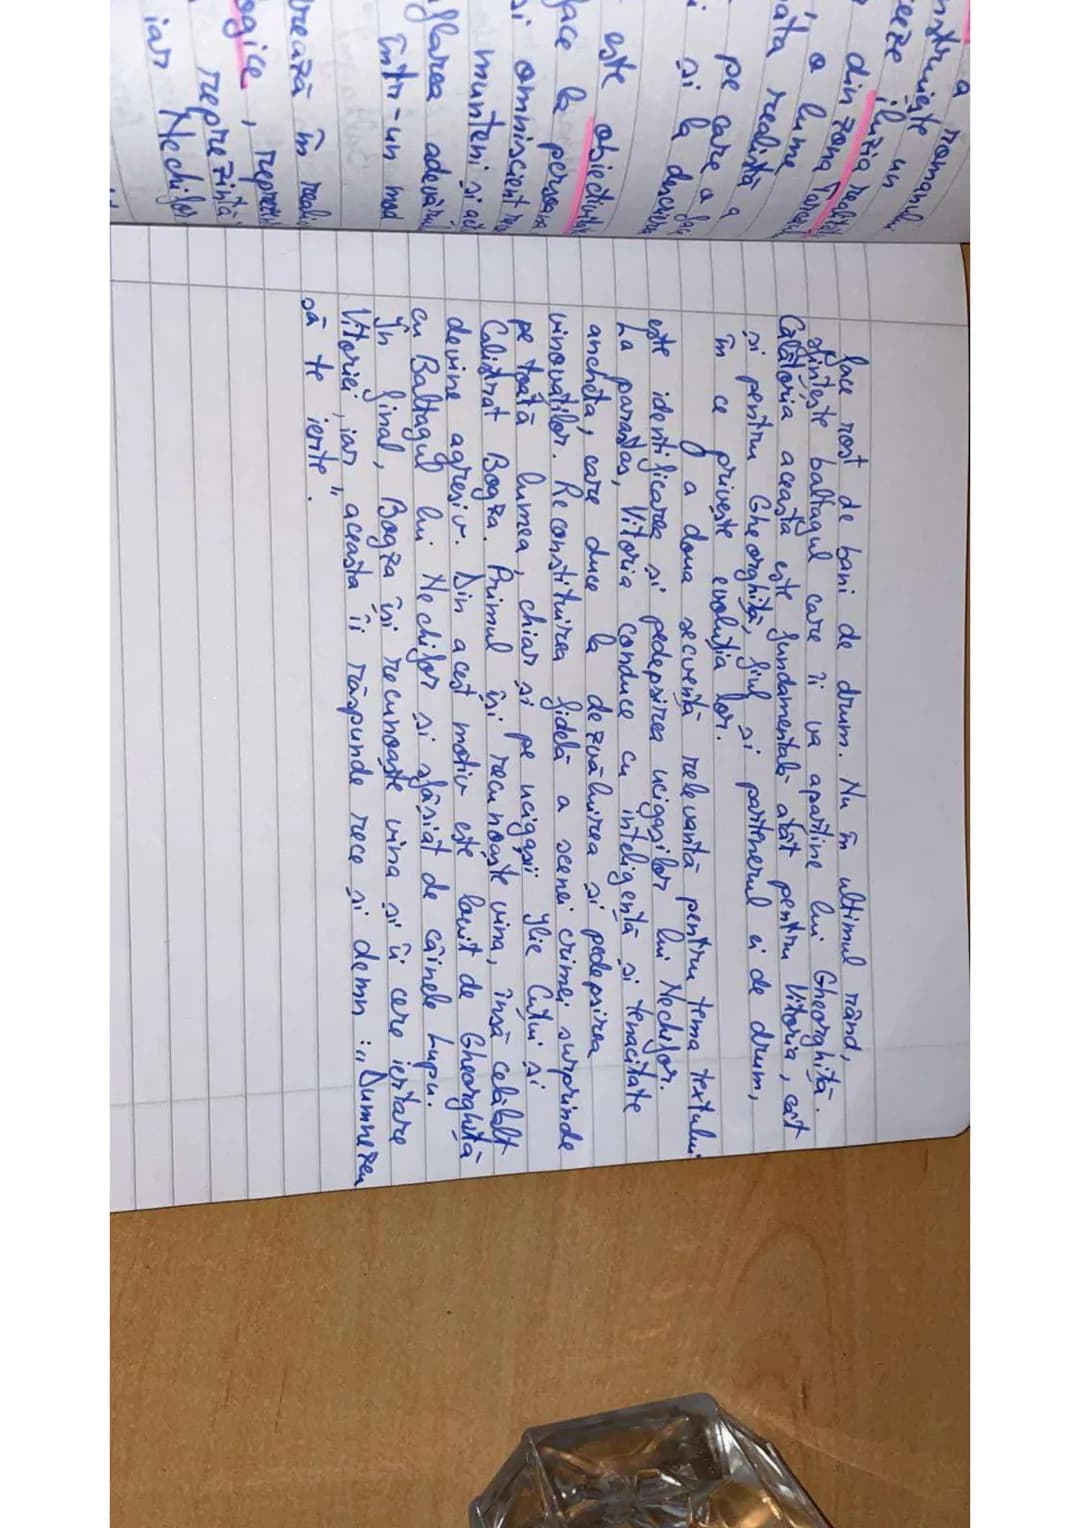 a romanul
nstruiește un
eeze iluzia realității
din zona Tarcăului
o lume
ată realistă a
pe care a
i și la
este obiectivă
face la persoana
și omniscient
munteni și
aflarea adevărul
într-un mod
rează în
ogice,
reprezintă
iar Nechifor
face rost de bani de drum. Nu în ultimul rând,
sfințește baltagul care îi va aparține lui Gheorghiță.
Călătoria aceasta este fundamentală atât pentru Vitoria, cât
și pentru Gheorghiță, fiul și partenerul ei de drum,
în ce privește evoluția lor.
y a doua secvență relevantă pentru tema textului
este identificarea și pedepsirea ucigașilor lui Nechifor.
La parastas, Vitoria conduce cu inteligență și tenacitate
ancheta, care duce la dezvăluirea și pedepsirea
vinovaților. Reconstituirea fidelă a scenei crimei surprinde
pe toată lumea, chiar și pe ucigașii Ilie Cuțui și
Calistrat Bogza. Primul își recunoaște vina, însă celălalt
devine agresiv. Din acest motiv este lovit de Gheorghiță
cu Baltagul lui Nechifor și sfâșiat de câinele Lupu.
În final, Bogza își recunoaște vina și îi cere iertare
Vitoriei, iar aceasta îi răspunde rece și demn: „Dumnezeu
să te ierte".